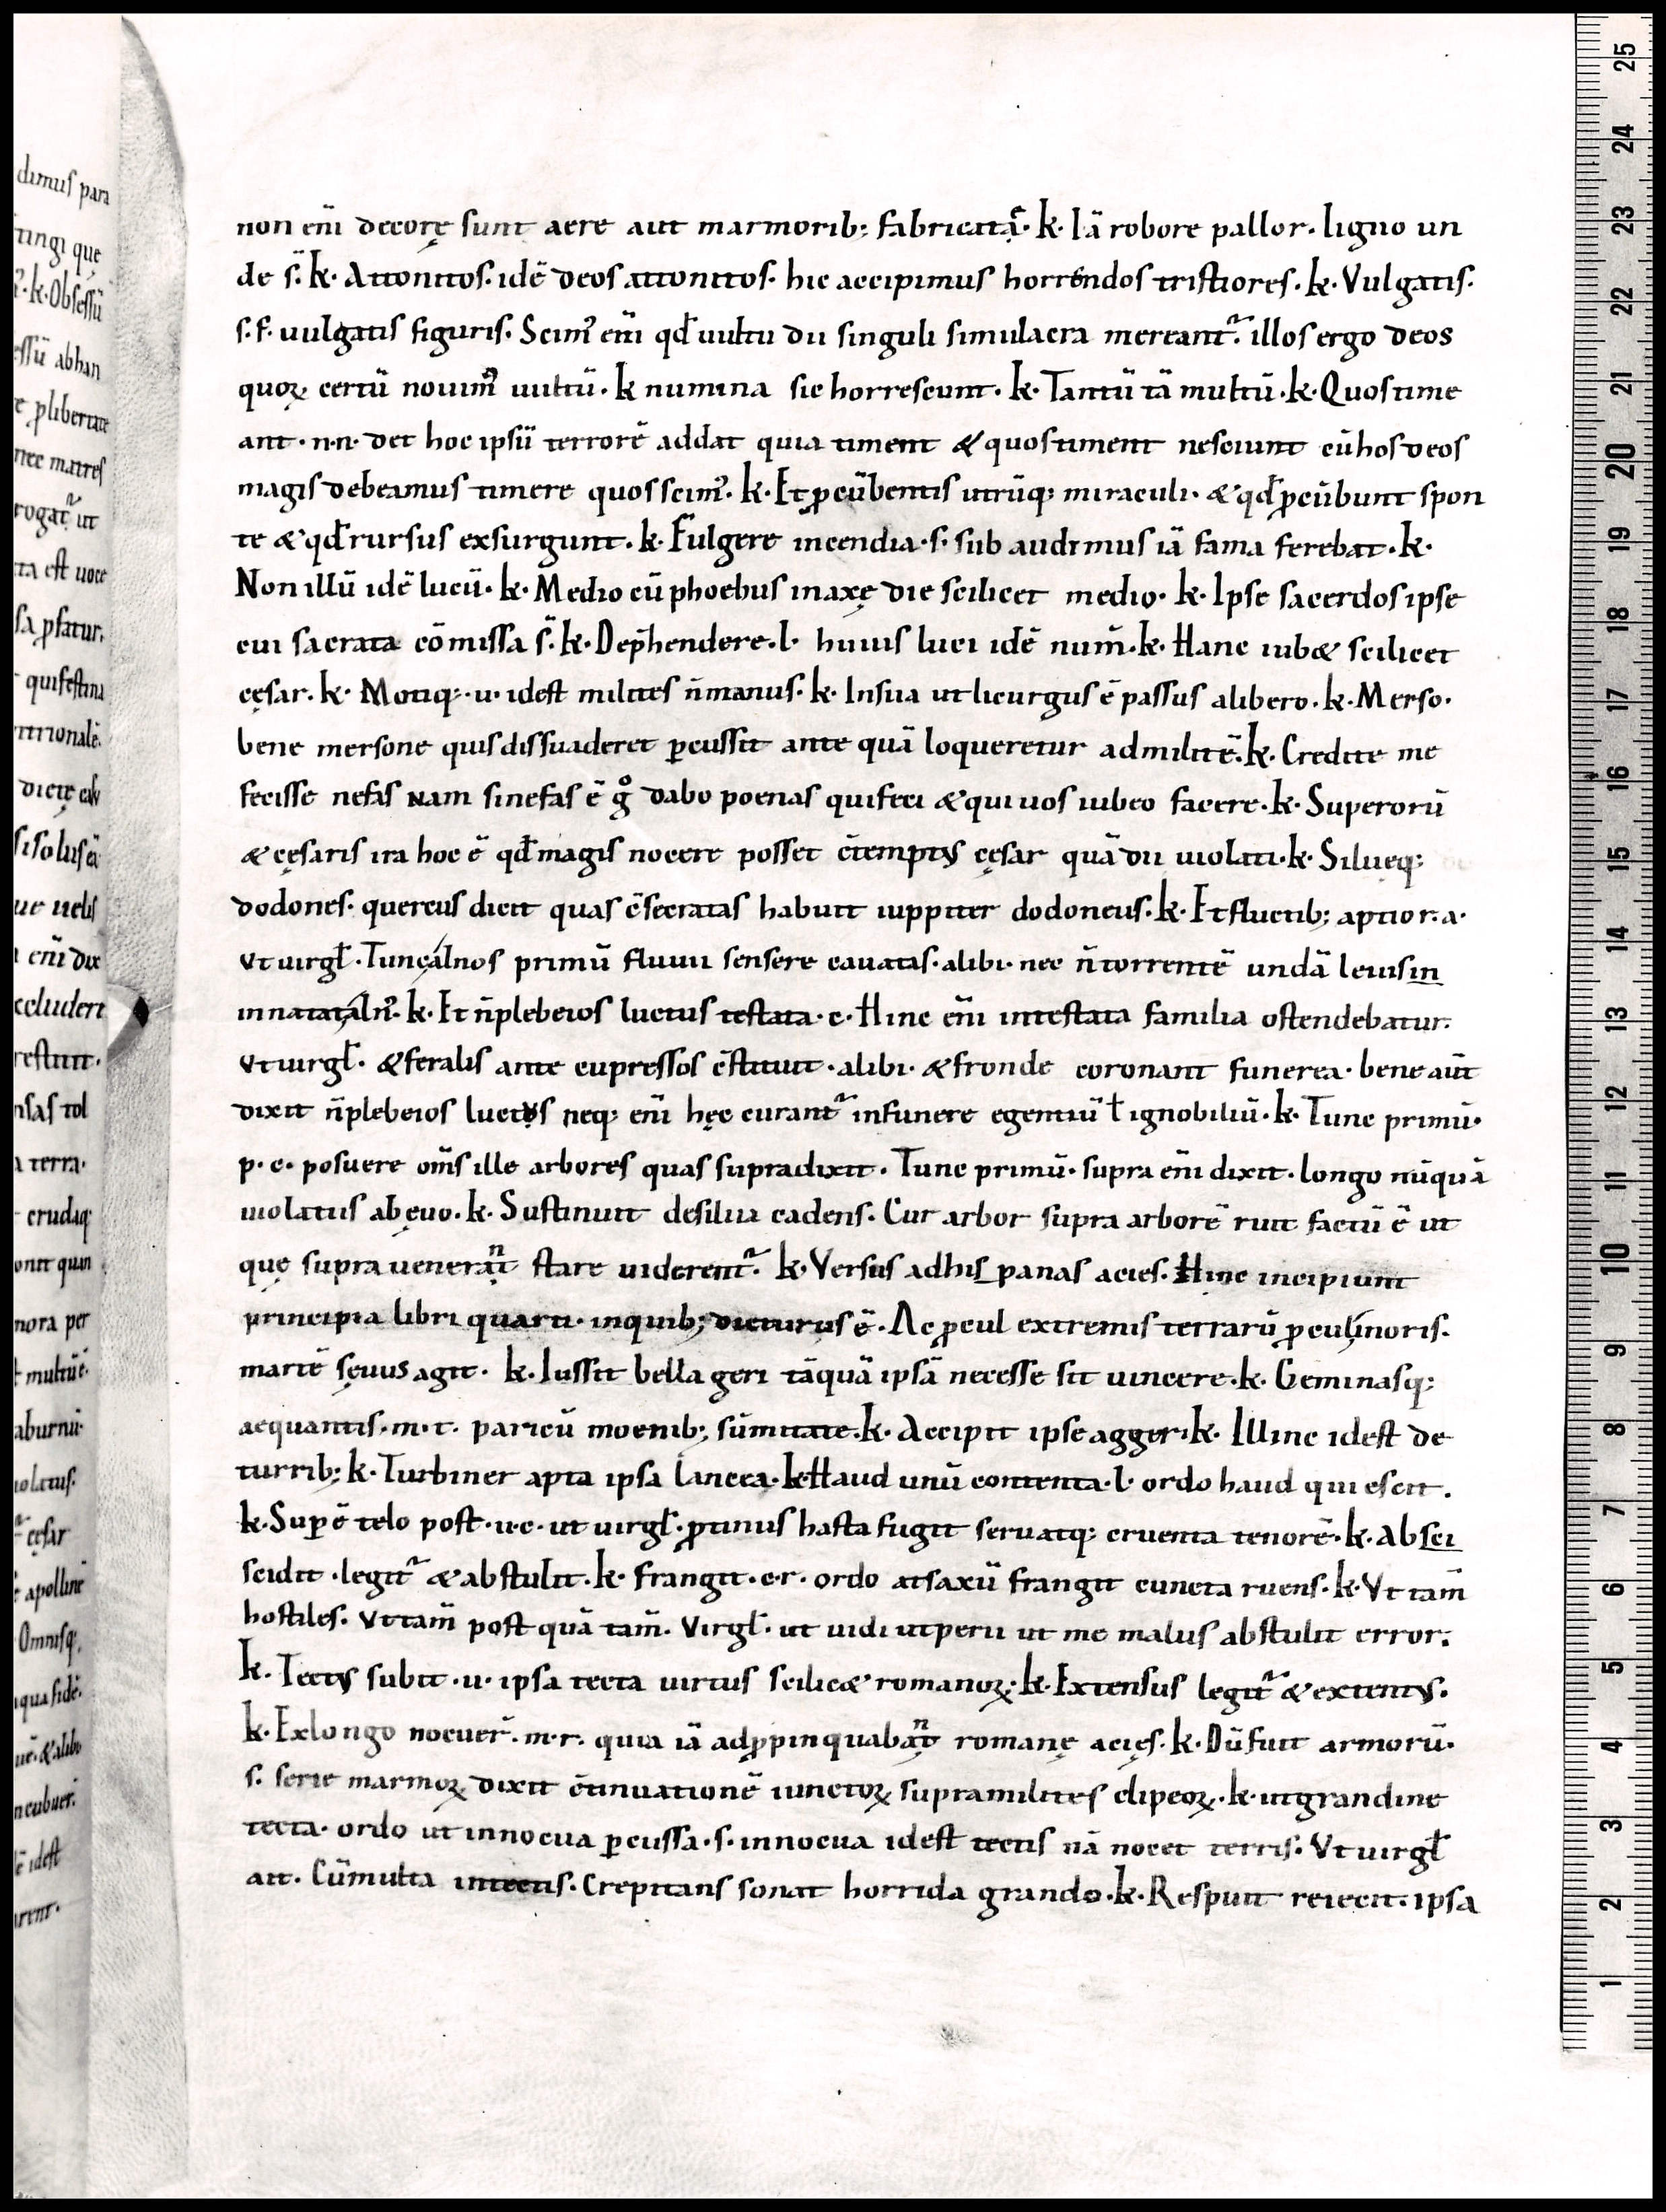 dimuſ para
tingi quę
k·Obſeſſū
eſſū abhan
e plibertate
nec matreſ
rogat᷑ ut
ta eſt uoce
ſa pſatur.
quifeſtina
ntrionalē.
dicit
ſiſoluſ
ue ueliſ
enī dix
xcludere
reſtitit.
nſaſ tol
a terra·
crudaq;
onit quan
nora per
multūē·
aburnū·
uolatuſ·
cęſar
apolline
Omniſq;
qua fidē.
uē·&alibi
ncubuer̄.
ē ideſt
urent·
non enī decorę ſunt aere aut marmorib; fabricatą·k·Iā robore pallor·ligno un
de ſ̄·k·Attonitoſ·idē deoſ attonitoſ·hic accipimuſ horrendoſ triſtioreſ·k·Vulgatiſ·
ſ·f·uulgatiſ figuriſ·Scim᷒ enī qd̄ uultu dii ſinguli ſimulacra mereant᷑·illoſ ergo deoſ
quoꝝ certū nouim᷒ uultū·k numina ſic horreſcunt·k·Tantū tā multū·k·Quoſtime
ant·n·n·det hoc ipſū terrorē addat quia timent &quoſtiment neſciunt cūhoſdeoſ
magiſ debeamuſ timere quoſ ſcim᷒·k·Et ꝓcūbentiſ utrūq; miraculi·&qd̄ ꝓcūbunt ſpon
te &qd̄ rurſuſ exſurgunt·k·Fulgere incendia·ſ·ſub audimuſ iā fama ferebat·k·
Non illū idē lucū·k·Medio cū phoebuſ inaxę die ſcilicet medio·k·Ipſe ſacerdoſ ipſe
cui ſacrata cōmiſſa ſ̄·k·Dep̄hendere·l·huiuſ luci idē num̄·k·Hanc iub& ſcilicet
cęſar·k·Motiq;·u·ideſt militeſ n̄manuſ·k·Inſua ut licurguſ ē paſſuſ alibero·k·Merſo·
bene merſone quiſ diſſuaderet ꝑcuſſit ante quā loqueretur admilitē·k·Credite me
feciſſe nefaſ nam ſinefaſ ē gͦ dabo poenaſ quifeci &qui uoſ iubeo facere·k·Superorū
&cęſariſ ira hoc ē qd̄ magiſ nocere poſſet cōtemptꝰ cęſar quā dii uiolati·k·Siluęq;
dodoneſ·quercuſ dicit quaſ cōſecrataſ habuit iuppiter dodoneuſ·k·Etfluctib; aptior·a·
Vt uirgl̄·Tunc alnoſ primū fluuii ſenſere cauataſ·alibi·nec n̄torrentē undā leuiſin
innatat aln᷒·k·Et n̄plebeioſ luctuſ teſtata·c·Hinc enī inteſtata familia oſtendebatur·
Vt uirgl̄·&feraliſ ante cupreſſoſ cōſtituit·alibi·&fronde coronant funerea·bene aūt
dixit n̄plebeioſ luctuſ neq; enī hęc curant᷑ infunere egentiū ł ignobiliū·k·Tunc primū·
p·c·poſuere om̄ſ ille arboreſ quaſ ſupradixit·Tunc primū·ſupra enī dixit·longo nūquā
uiolatuſ ab ęuo·k·Suſtinuit deſilua cadenſ·Cur arbor ſupra arborē ruit factū ē ut
quę ſupra uenerant ſtare uiderent᷑·k·Verſuſ adhiſpanaſ acieſ·Hinc incipiunt
principia libri quarti·inquib; dicturuſ ē·Ac ꝓcul extremiſ terrarū ꝓcul inoriſ·
martē ſęuuſ agit·k·Iuſſit bella geri tāquā ipſā neceſſe ſit uincere·k·Geminaſq;
aequantiſ·m·t·parietū moenib; ſūmitate·k·Accipit ipſe agger·k·Illinc ideſt de
turrib;·k·Turbine apta ipſa lancea·k·Haud unū contenta·l·ordo haud quieſcit·
k·Suꝑ ē telo poſt·u·c·ut uirgl̄·ꝓtinuſ haſta fugit ſeruatq; cruenta tenorē·k·Abſci
ſcidit·legit᷑ &abſtulit·k·frangit·c·r·ordo atſaxū frangit cuncta ruenſ·k·Vt tam̄
hoſtileſ·Vt tam̄ poſt quā tam̄·Virgl̄·ut uidi utperii ut me maluſ abſtulit error·
k·Tectꝰ ſubit·u·ipſa tecta uirtuſ ſcilic& romanoꝝ·k·Extenſuſ legit᷑ &extentꝰ·
k·Exlongo nocuer̄·m·r·quia iā adꝓpinquabant romanę acięſ·k·Dū fuit armorū·
ſ·ſerie marmoꝝ dixit cōtinuationē iunctoꝝ ſupramiliteſ clipeoꝝ·k·utgrandine
tecta·ordo ut innocua ꝑcuſſa·ſ·innocua ideſt tectiſ nā nocet terriſ·Vt uirgl̄
ait·Cūmulta intectiſ·Crepitanſ ſonat horrida grando·k·Reſpuit reiecit·ipſa
25
24
23
22
21
20
19
18
17
16
15
14
13
12
11
10
9
8
7
6
5
4
3
2
1